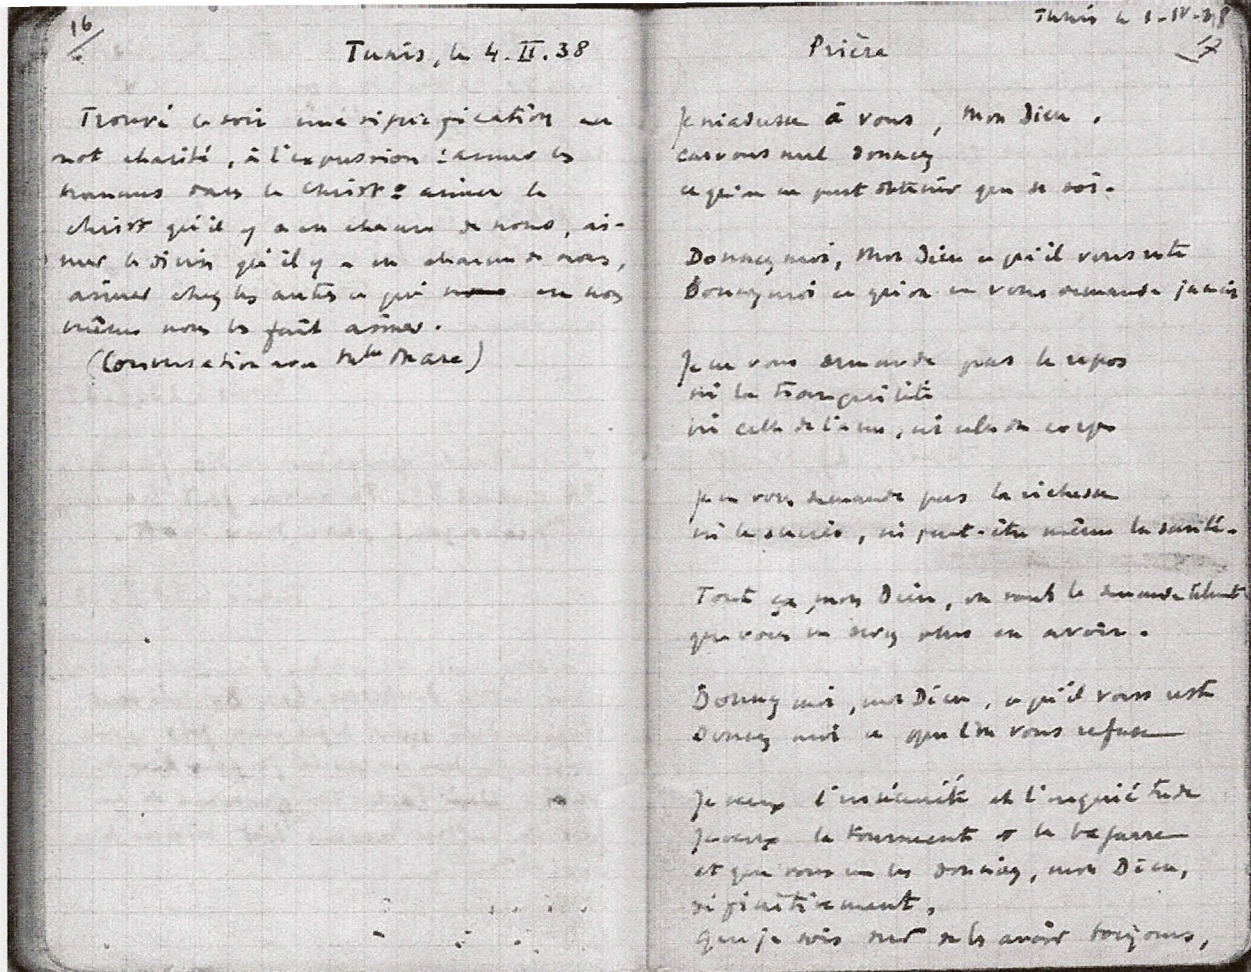 16
Tunis, le 4.II.38
Trouvé ce soir une signification au
mot charité, à l'expression : aimer les
hommes dans le Christ : aimer le
Christ qu'il y a en chacun de nous, ai-
mer le divin qu'il y a en chacun de nous,
aimer chez les autres ce qui en nous
même nous les fait aimer.
(Conversation avec
Tunis le 1-IV-38
17
Prière
Je m'adresse à vous, mon Dieu,
car vous seul donnez
ce qu'on ne peut obtenir que de soi.
Donnez moi, mon Dieu ce qu'il vous reste
Donnez moi ce qu'on ne vous demande jamais
Je ne vous demande pas le repos
ni la tranquilité
ni celle de l'âme, ni celle du corps
Je ne vous demande pas la richesse
ni le succès, ni peut-être même la santé.
Tout ça, mon Dieu, on vous le demande tellement
que vous ne devez plus en avoir.
Donnez moi, mon Dieu, ce qu'il vous reste
Donnez moi ce que l'on vous refuse
Je veux l'insécurité et l'inquiétude
Je veux la tourmente et la bagarre
et que vous me les donniez, mon Dieu,
définitivement,
que je sois sur de les avoir toujours,